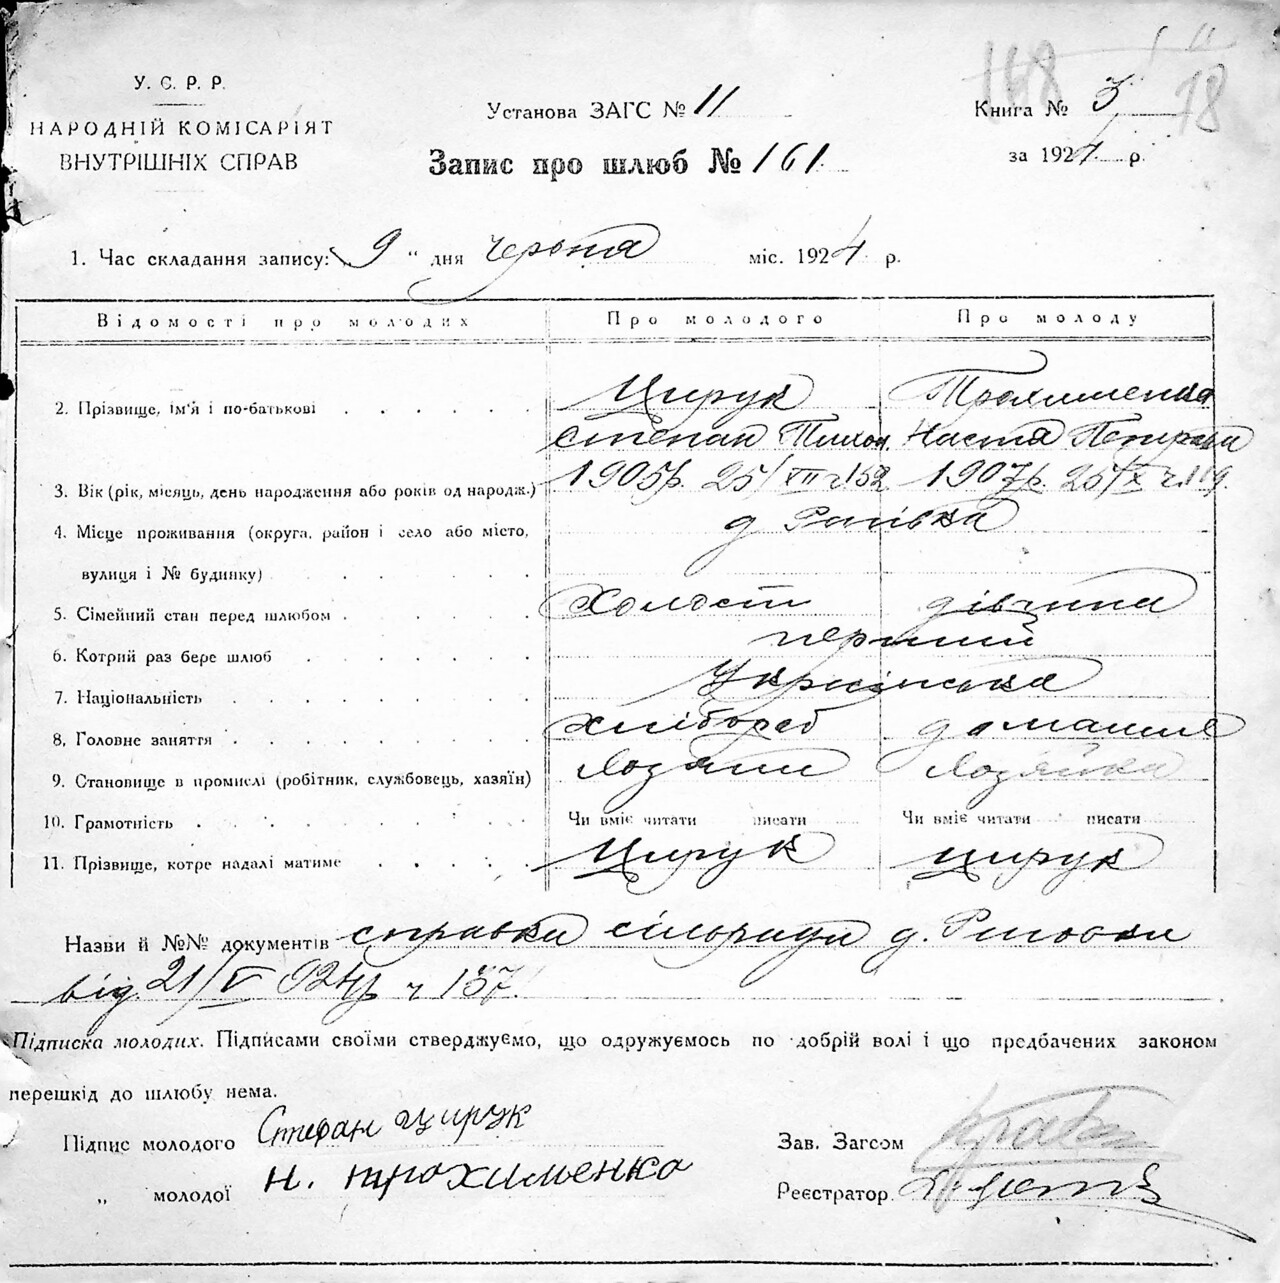 168 18
У. С. Р. Р.
НАРОДНІЙ КОМІСАРІЯТ
ВНУТРІШНІХ СПРАВ
Установа ЗАГС № 11
Запис про шлюб № 161
Книга № 3
за 1924 р.
1. Час складання запису: „9“ дня червня міс. 1924 р.
Відомості про молодих Про молодого Про молоду
2. Прізвище, ім'я і по-батькові Цирук Трохименко
Степан Тихон. Настя Петрова
3. Вік (рік, місяць, день народження або років од народж.) 1905р. 25/XII ч 152 1907р. 25/X ч. 119.
4. Місце проживання (округа, район і село або місто, д
вулиця і № будинку)
5. Сімейний стан перед шлюбом Холост дівчина
6. Котрий раз бере шлюб перший
7. Національність Українська
8, Головне заняття хлібороб домашнє
9. Становище в промислі (робітник, службовець, хазяїн) хозяїн хозяйка
10. Грамотність Чи вміє читати писати Чи вміє читати писати
11. Прізвище, котре надалі матиме Цирук Цирук
Назви й №№ документів справка сільради д.
від 21/V 924р ч 157.
Підписка молодих. Підписами своїми стверджуємо, що одружуємось по добрій волі і що предбачених законом
перешкід до шлюбу нема.
Підпис молодого Стефан Цирук
Зав. Загсом
„ молодої Н. Трохименко
Реєстратор